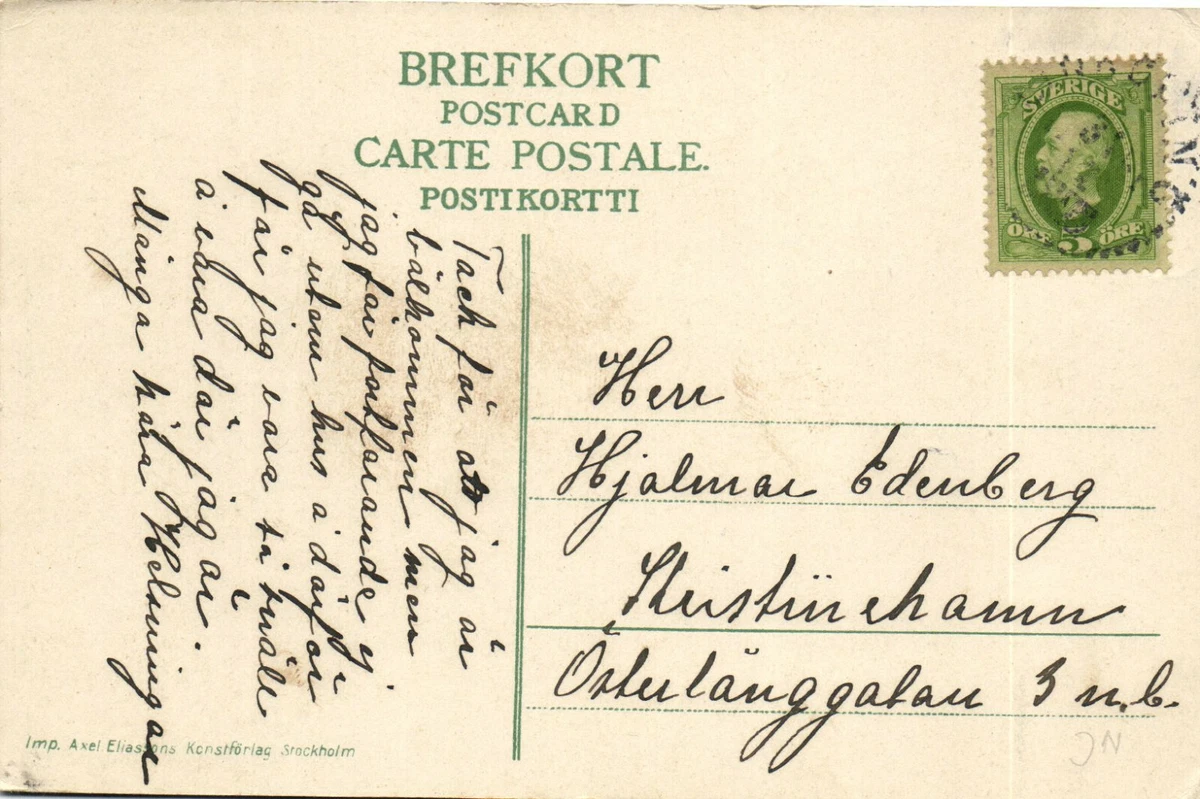 BREFKORT
POSTCARD
CARTE POSTALE.
POSTIKORTTI
SVERIGE
ÖRE 5 ÖRE
Tack för att jag är
välkommen men
jag får fortfarande ej
gå utom hus å därför
får jag vara så snäll
å vara där jag är.
Många kära Helsningar
Herr
Hjalmar Edenberg
Kristinehamn
Österlånggatan 3 n.b.
Imp. Axel Eliassons Konstförlag Stockholm
JN